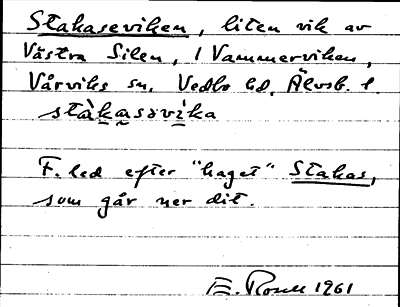 Stakaseviken, liten vik av
Västra Silen, i Vammerviken,
Vårviks sn, Vedbo hd, Älvsb. l.
stàkasəvìka
F. led efter "haget" Stakas,
som går ner dit.
1961